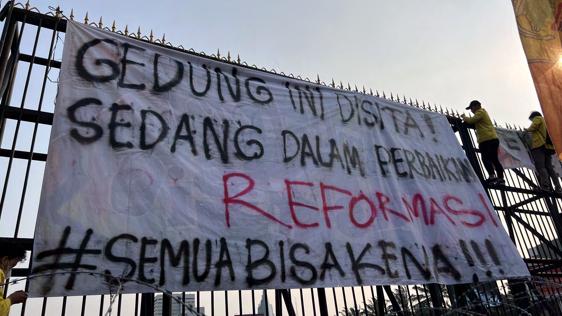 GEDUNG INI DISITA!
SEDANG DALAM PERBAIKAN
REFORMASI
#SEMUABISAKENA!!!